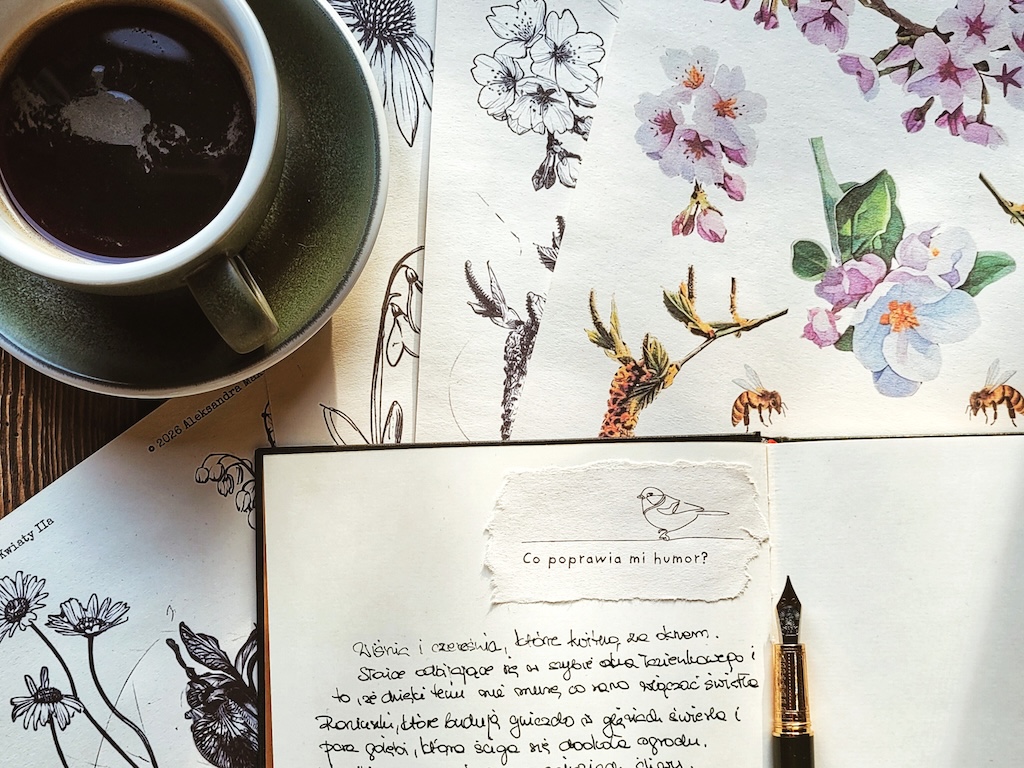 © 2026 Aleksandra
Kwiaty IIa
Co poprawia mi humor?
Wiśnia i czereśnia, które kwitną za oknem.
Słońce odbijające się w szybie okna łazienkowego i
to, że dzięki temu nie muszę co rano włączać światła
które budują gniazdo w gałęziach świerka i
para gołębi, która ściga się dookoła ogrodu.